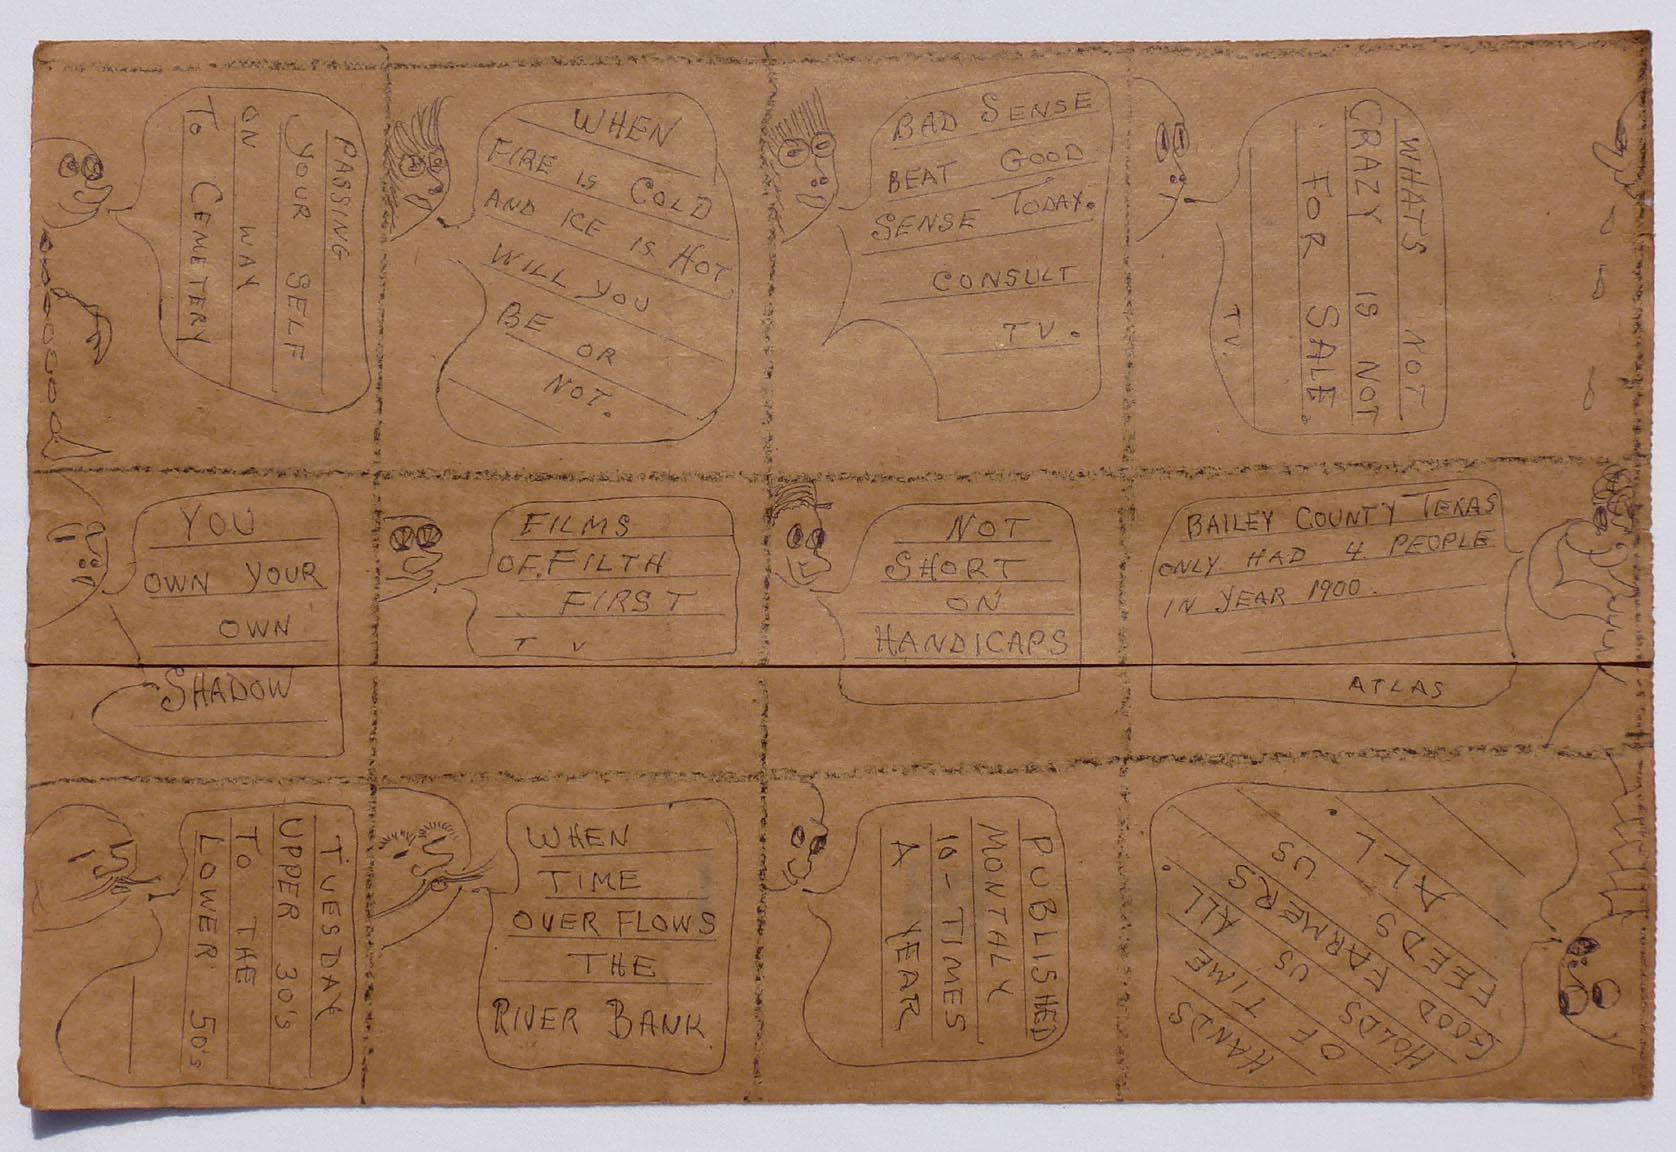 PASSING
YOUR SELF
ON WAY
TO CEMETERY
WHEN
FIRE IS COLD
AND ICE IS HOT
WILL YOU
BE OR
NOT.
BAD SENSE
BEAT GOOD
SENSE TODAY.
CONSULT
TV.
WHATS NOT
CRAZY IS NOT
FOR SALE.
TV.
YOU
OWN YOUR
OWN
SHADOW
FILMS
OF FILTH
FIRST
T V
NOT
SHORT
ON
HANDICAPS
BAILEY COUNTY TEXAS
ONLY HAD 4 PEOPLE
IN YEAR 1900.
ATLAS
TUESDAY
UPPER 30's
TO THE
LOWER 50's
WHEN
TIME
OVER FLOWS
THE
RIVER BANK
PUBLISHED
MONTHLY
10-TIMES
A YEAR
HANDS
OF TIME
HOLDS US ALL.
GOOD FARMERS
FEEDS US
ALL.